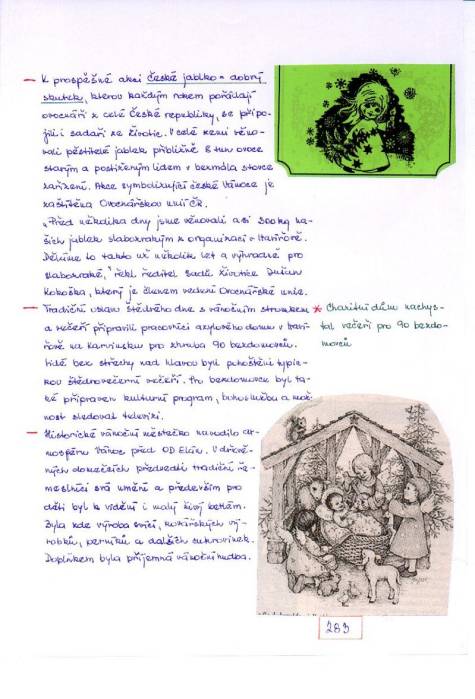 K prospěšné akci České jablko - dobrý
skutek, kterou každým rokem pořádají
ovocnáři z celé České republiky, se připo-
jili i sadaři ze Životic. V celé zemi věno-
vali pěstitelé jablek přibližně 8 tun ovoce
starým a postiženým lidem v bezmála stovce
zařízení. Akce symbolizující české Vánoce je
zaštítěna Ovocnářskou unií ČR.
"Před několika dny jsme věnovali asi 300 kg na-
šich jablek slabozrakým z organizací v Havířově.
Děláme to takto už několik let a výhradně pro
slabozraké," řekl ředitel sadů Životice Dušan
Kokoška, který je členem vedení Ovocnářské unie.
Tradiční oslavu Štědrého dne s vánočním stromkem
a večeří připravili pracovníci azylového domu v Haví-
řově na Karvinsku pro zhruba 90 bezdomovců.
Lidé bez střechy nad hlavou byli pohoštěni typic-
kou štědrovečerní večeří. Pro bezdomovce byl ta-
ké připraven kulturní program, bohoslužba a mož-
nost sledovat televizi.
* Charitní dům nachys-
tal večeři pro 90 bezdo-
movců
Historické vánoční městečko navodilo at-
mosféru Vánoc před OD Elán. V dřevě-
ných domečcích předvedli tradiční ře-
meslníci svá umění a především pro
děti byl k vidění i malý živý betlém.
Byla zde výroba svící, kovářských vý-
robků, perníků a dalších cukrovinek.
Doplňkem byla příjemná vánoční hudba.
283